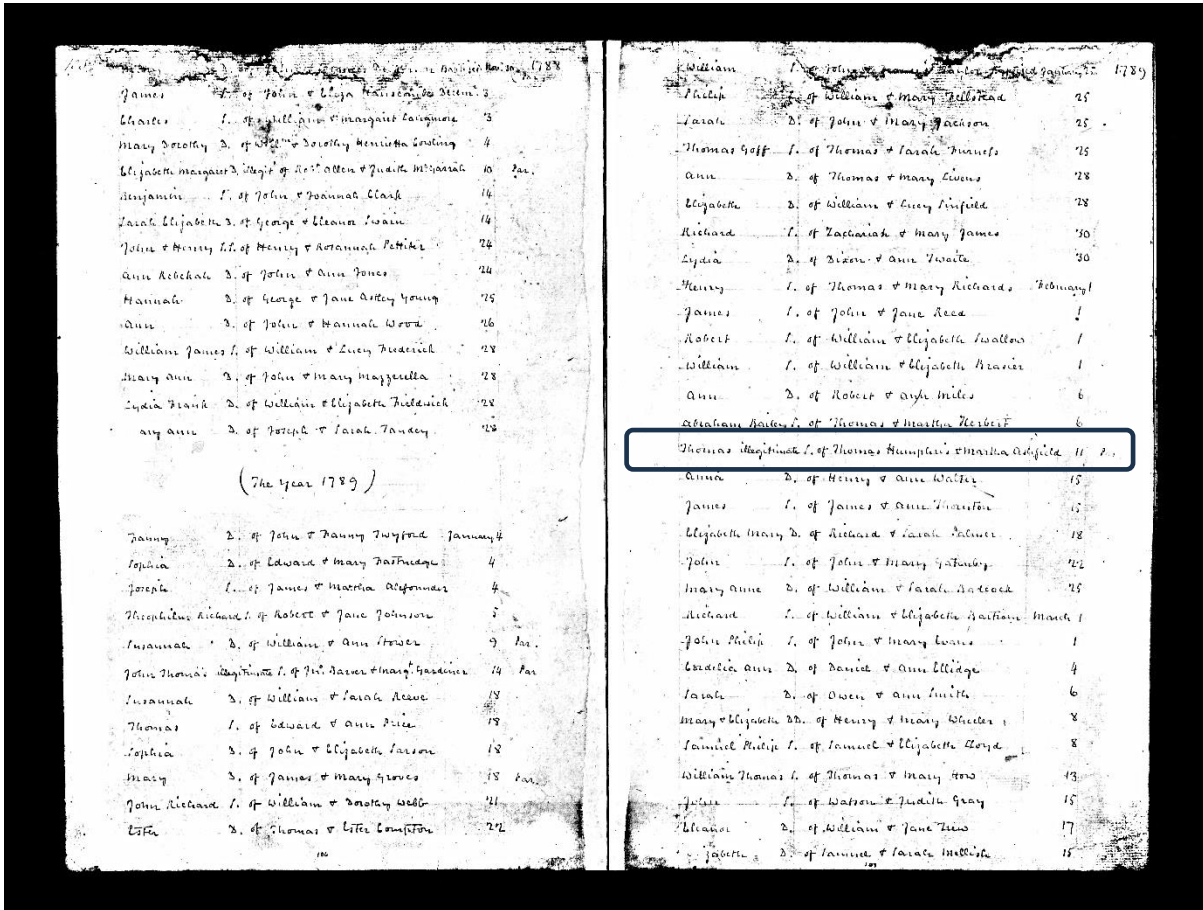 1788
James S. of John & Eliza Hanscombe Decem. 3
Charles S. of William & Margaret Larrymore 3
Mary Dorothy D. of Willm & Dorothy Henrietta Cowling 4
Elizabeth Margaret D. illegit. of Robt Allen & Judith McGarrah 10 Par.
Benjamin S. of John & Joannah Clark 14
Sarah Elizabeth D. of George & Eleanor Swain 14
John & Henry S.S. of Henry & Rosannah Pettiter 24
Ann Rebekah D. of John & Ann Jones 24
Hannah D. of George & Jane Astley Young 25
Ann D. of John & Hannah Wood 26
William James S. of William & Lucey Frederick 28
Mary Ann D. of John & Mary Mazzerella 28
Lydia Frank D. of William & Elizabeth Fieldwick 28
ary Ann D. of Joseph & Sarah Tandey 28
(The Year 1789)
Fanny D. of John & Fanny Twyford January 4
Sophia D. of Edward & Mary Eastridge 4
Joseph S. of James & Martha Alefounder 4
Theophilus Richard S. of Robert & Jane Johnson 5
Susannah D. of William & Ann Stower 9 Par.
John Thomas illegitimate S. of Jno. Barver & Margt. Gardiner 14 Par
Susannah D. of William & Sarah Reeve 18
Thomas S. of Edward & Ann Price 18
Sophia D. of John & Elizabeth Sarson 18
Mary D. of James & Mary Groves 18 Par.
John Richard S. of William & Dorothy Webb 21
Ester D. of Thomas & Ester Compton 22
106
William S. of John & Taylor 22 1789
Philip S. of William & Mary Fellstead 25
Sarah D. of John & Mary Jackson 25
Thomas Goff S. of Thomas & Sarah Furness 25
Ann D. of Thomas & Mary Livens 28
Elizabeth D. of William & Lucey Sinfield 28
Richard S. of Zachariah & Mary James 30
Lydia D. of Dixon & Ann Twaite 30
Henry S. of Thomas & Mary Richards February 1
James S. of John & Jane Reed 1
Robert S. of William & Elizabeth Swallow 1
William S. of William & Elizabeth Brasier 1
Ann D. of Robert & Ann Miles 6
Abraham Bailey S. of Thomas & Martha Herbert 6
Thomas illegitimate S. of Thomas Humphris & Martha Ashfield 11
Anna D. of Henry & Ann Walter 15
James S. of James & Ann Thornton 15
Elizabeth Mary D. of Richard & Sarah Palmer 18
John S. of John & Mary Gatenby 22
Mary Anne D. of William & Sarah Badcock 25
Richard S. of William & Elizabeth Bartram March 1
John Philip S. of John & Mary Evans 1
Cordelia Ann D. of Daniel & Ann Ellidge 4
Sarah D. of Owen & Ann Smith 6
Mary & Elizabeth DD. of Henry & Mary Wheeler 8
Samuel Philip S. of Samuel & Elizabeth Lloyd 8
William Thomas S. of Thomas & Mary How 13
John S. of Watson & Judith Gray 15
Eleanor D. of William & Jane Trew 17
zabeth D. of Samuel & Sarah Mellish 15